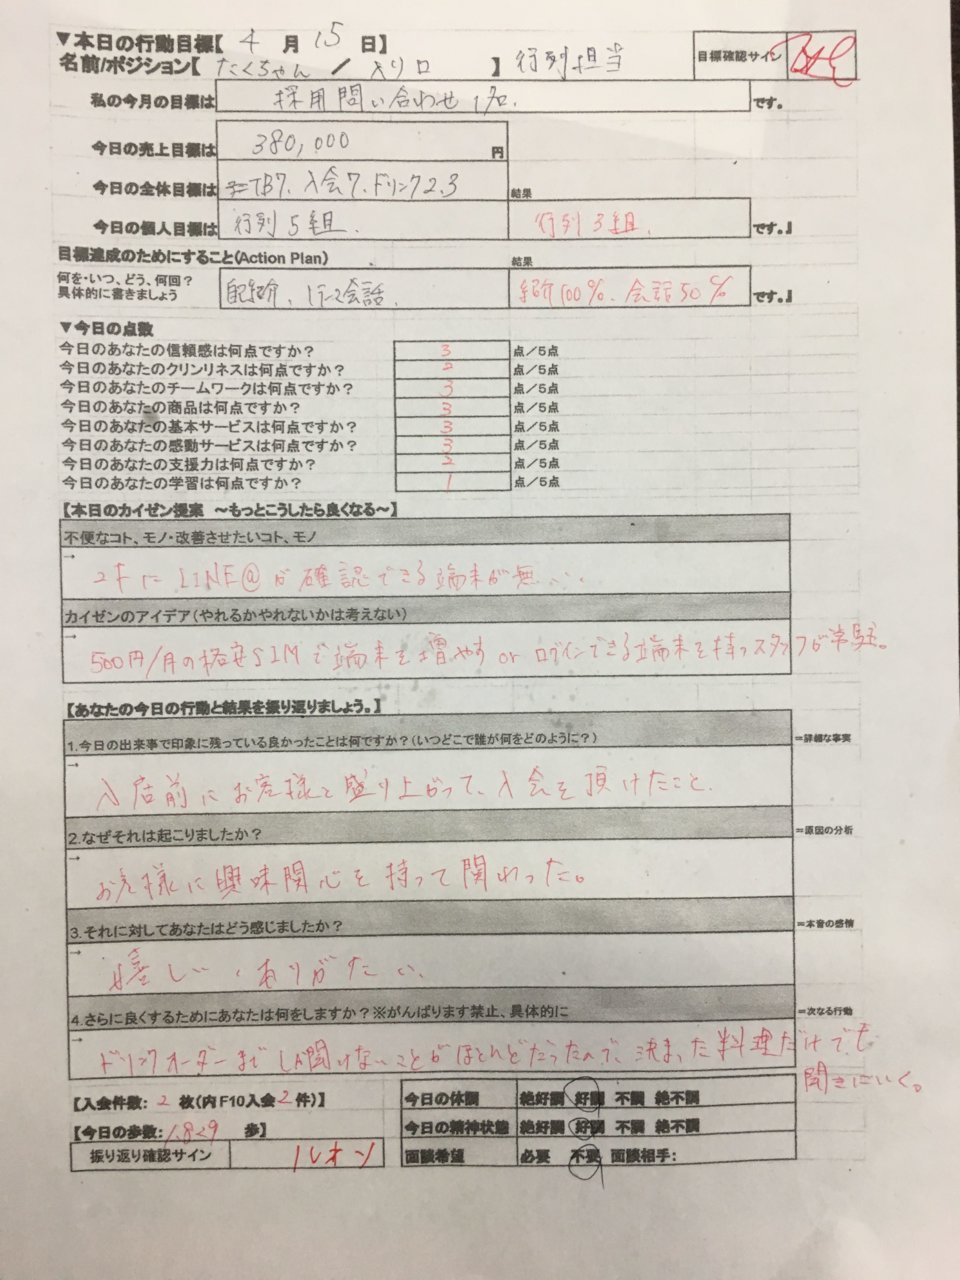 ▼本日の行動目標【 4 月 15 日】
名前/ポジション【 たくちゃん / 入り口 】 行列担当
目標確認サイン
私の今月の目標は 採用問い合わせ 1名. です。
今日の売上目標は 380,000 円
今日の全体目標は TB7、入会7、ドリンク2.3 結果
今日の個人目標は 行列 5組. 行列 3組. です。』
目標達成のためにすること(Action Plan) 結果
何を・いつ、どう、何回?
具体的に書きましょう
紹介、1テーマ会話. 紹介100%、会話50% です。』
▼今日の点数
今日のあなたの信頼感は何点ですか? 3 点/5点
今日のあなたのクリンリネスは何点ですか? 2 点/5点
今日のあなたのチームワークは何点ですか? 3 点/5点
今日のあなたの商品は何点ですか? 3 点/5点
今日のあなたの基本サービスは何点ですか? 3 点/5点
今日のあなたの感動サービスは何点ですか? 3 点/5点
今日のあなたの支援力は何点ですか? 2 点/5点
今日のあなたの学習は何点ですか? 1 点/5点
【本日のカイゼン提案 ~もっとこうしたら良くなる~】
不便なコト、モノ・改善させたいコト、モノ
→
2Fに LINE@が確認できる端末が無い...
カイゼンのアイデア(やれるかやれないかは考えない)
→
500円/月の格安SIMで端末を増やす or ログインできる端末を持つスタッフが常駐。
【あなたの今日の行動と結果を振り返りましょう。】
1.今日の出来事で印象に残っている良かったことは何ですか?(いつどこで誰が何をどのように?) =詳細な事実
→
入店前にお客様と盛り上がって、入会を頂けたこと.
2.なぜそれは起こりましたか? =原因の分析
→
お客様に興味関心を持って関わった。
3.それに対してあなたはどう感じましたか? =本音の感情
→
嬉しい、ありがたい.
4.さらに良くするためにあなたは何をしますか?※がんばります禁止、具体的に =次なる行動
→
ドリンクオーダーまでしか聞けないことがほとんどだったので、決まった料理だけでも
聞きにいく。
【入会件数: 2 枚(内F10入会2件)】
【今日の歩数: 1,829 歩】
振り返り確認サイン ルオン
今日の体調 絶好調 好調 不調 絶不調
今日の精神状態 絶好調 好調 不調 絶不調
面談希望 必要 不要 面談相手: